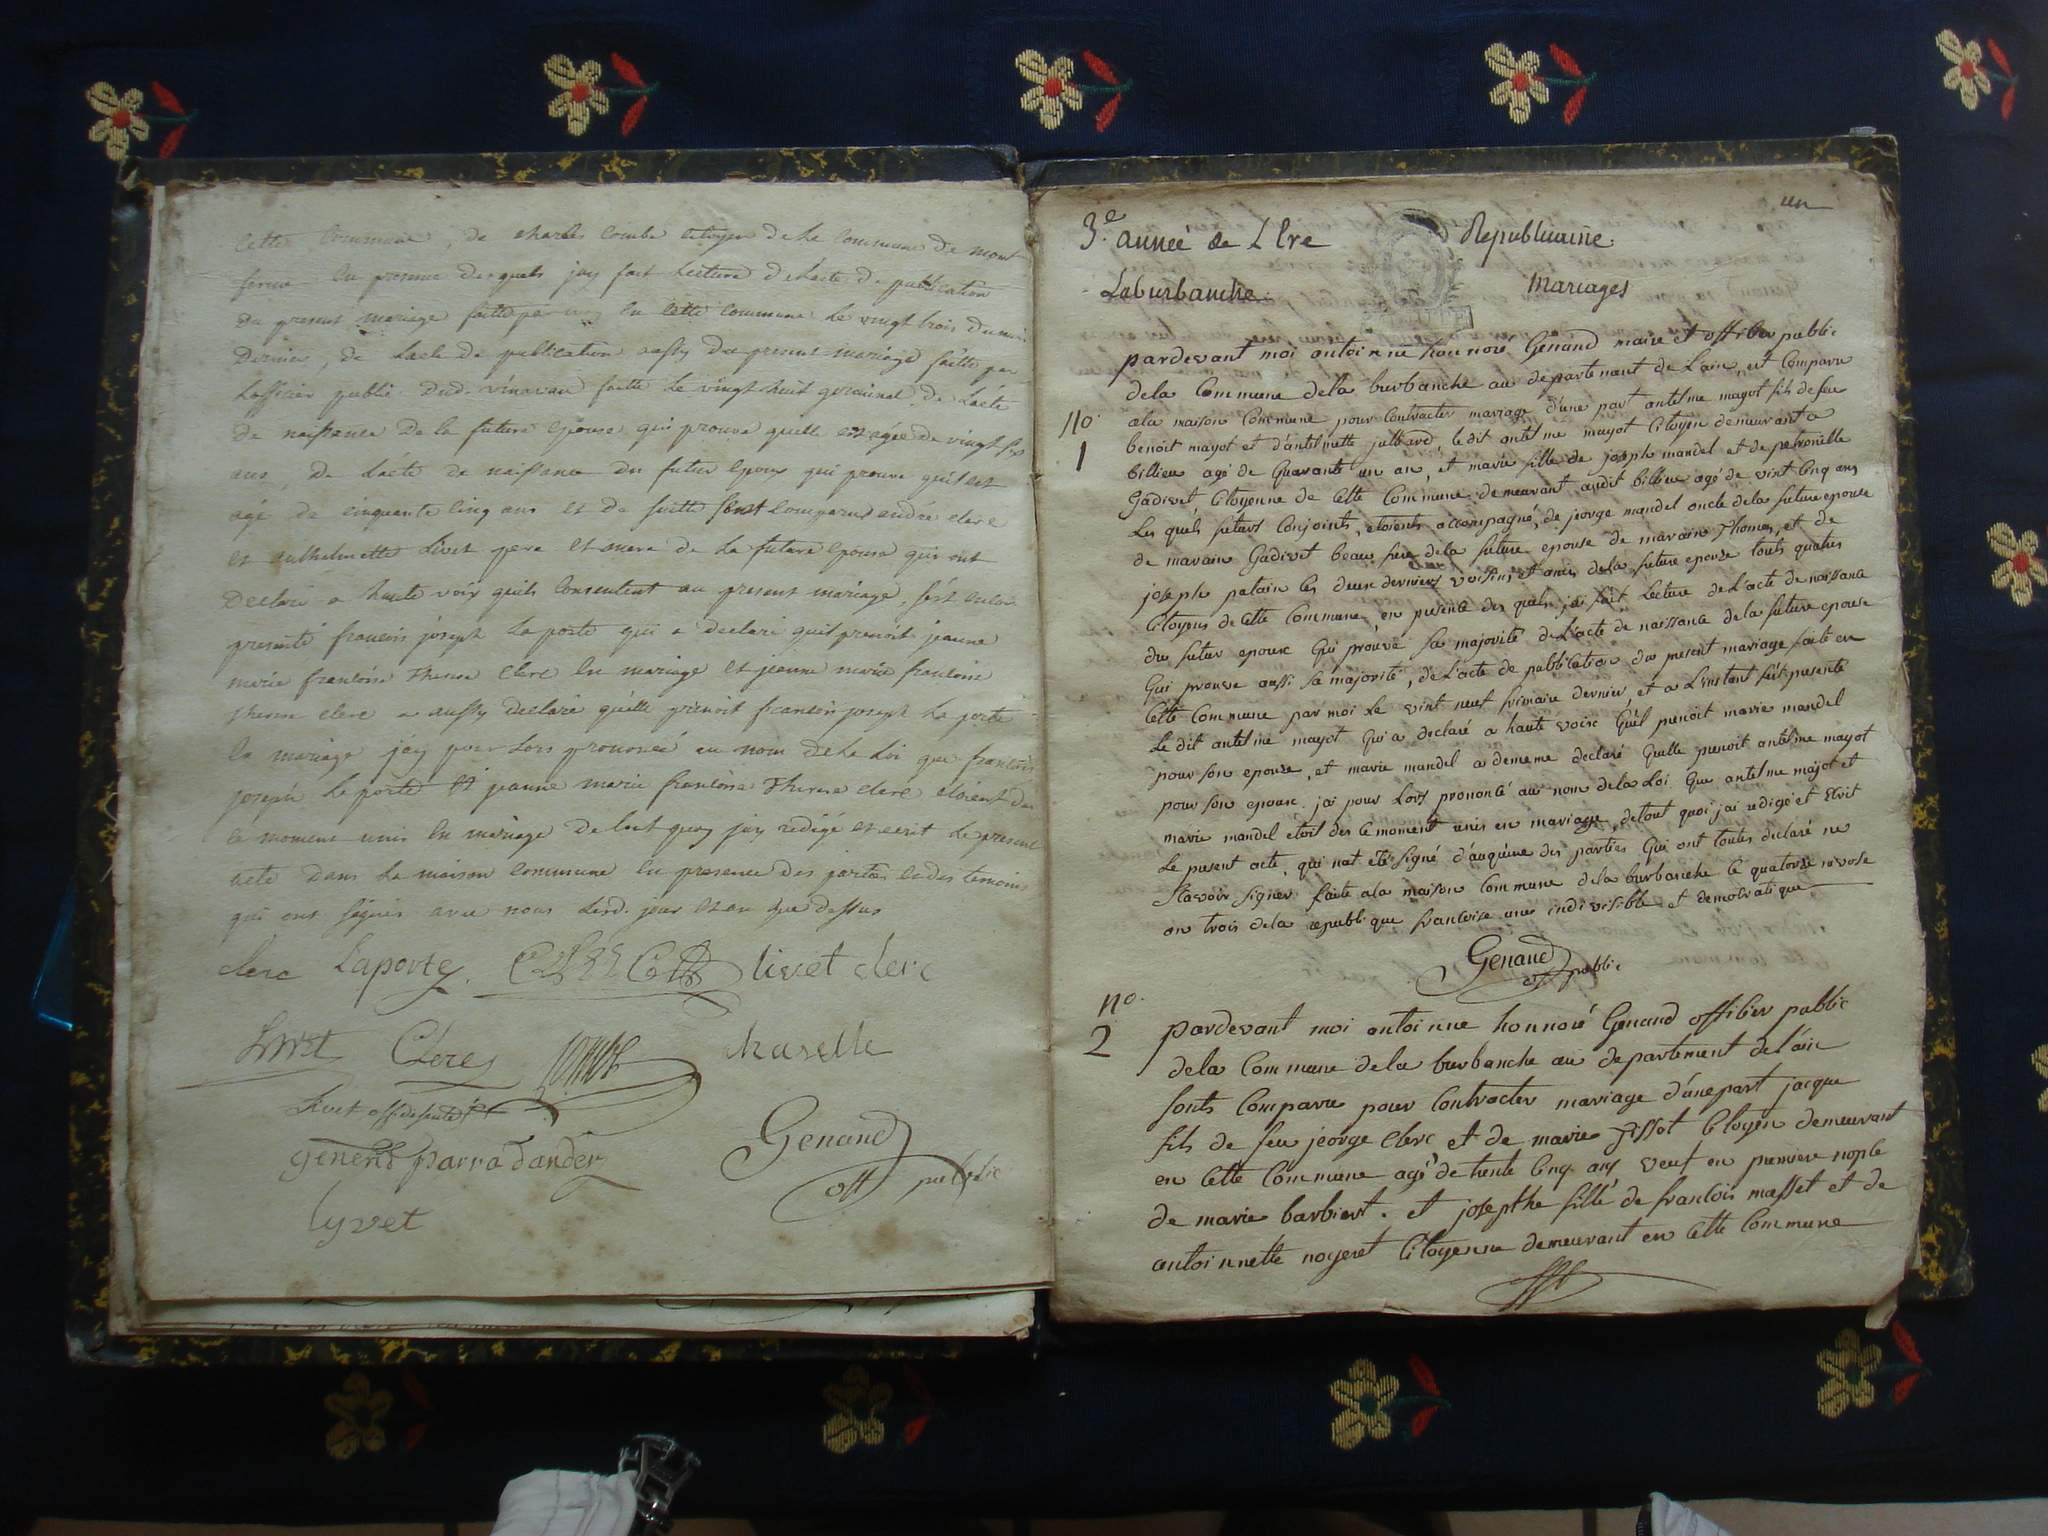 cette Commune, de charles combe citoyen de la commune de mont
ferra en presence desquels jay fait Lecture de Lacte de publication
du present mariage faitte par en cette commune Le vingt trois du mois
Dernier, de Lacte de publication aussy du present mariage faitte par
Lofficier public Dud. vénavau faitte Le vingt huit germinal de Lacte
de naissance De la future epouse qui prouve quelle est agée de vingt six
ans, De Lacte de naissance du futur epoux qui prouve quil est
agé de cinquante cinq ans et De suitte sont comparus andré clerc
et anthelmette Livet pere et mere de La future epouse qui ont
Declaré a haute voix quils consentent au present mariage, s'est
presenté francois joseph La porte qui a declaré quil prenoit jeanne
marie francoise Therese clerc en mariage et jeanne marie francoise
Therese clerc a aussy declaré quelle prenoit francois joseph La porte
en mariage jay pour Lors prononcé au nom de La Loi que francois
joseph La porte et jeanne marie francoise Therese clerc étoient des
ce moment unis en mariage De tout quoy jay redigé et ecrit Le present
acte Dans La maison commune en presence des parties et des temoins
qui ont signés avec nous Lesd. jour et an que dessus
clerc Laporte. livet clerc
Livet Clerc combe chavelle
Livet off. public
Genand
off public
lyvet
un
3.e année de L Ere Republicaine
Laburbanche Mariages
pardevant moi antoinne honnoré Genand maire et officier public
dela Commune dela burbanche au departement de Lain, est Comparu
ala maison Commune pour Contracter mariage d'une part antelme mayot fils de feu
no. 1
benoit mayot et d'antelmette julliard, le dit antelme mayot Citoyen demeurant a
billieu agé de quarante un an, et marie fille de joseph mandel et de petronille
Gadivet Citoyenne de Cette Commune demeurant audit billieu agé de vint Cinq ans
Les quels futurs Conjoints, etoients accompagné, de jeorge mandel oncle dela future epouse
de marain Gadivet beau frere dela future epouse de marain Thomas, et de
joseph palain les deux derniers voisins et amis dela future epouse touts quatres
Citoyens de Cette Commune, en presence des quels j'ai fait Lecture de L'acte de naissance
du futur epoux Qui prouve sa majorité de L'acte de naissance de la future epouse
Qui prouve aussi sa majorité, de L'acte de publication du present mariage faite en
Cette Commune par moi Le vint neuf frimaire dernier, et a L'instant s'est presenté
Le dit antelme mayot Qui a declaré a haute voix Qu'il prenoit marie mandel
pour son epouse, et marie mandel a dememe declaré Quelle prenoit antelme mayot
pour son epoux. jai pour Lors prononcé au nom dela Loi Que antelme majot et
marie mandel etoit des ce moment unis en mariage, detout quoi j'ai redigé et Ecrit
Le present acte, qui nat été signé d'auquune des parties Qui ont toutes declaré ne
scavoir signer faite ala maison Commune dela burbanche le quatorze nivose
an trois dela republique francoise une indivisible et democratique
Genand
off. public
no. 2
pardevant moi antoinne honnoré Genand officier public
dela Commune dela burbanche au departement de L'ain
sonts Comparu pour Contracter mariage d'une part jacque
fils de feu jeorge Clerc et de marie Tissot Citoyen demeurant
en Cette Commune agé de trente Cinq ans veuf en premiere nopce
de marie barbiert. et josepthe fille de francois masset et de
antoinnette noyeret Citoyenne demeurant en Cette Commune